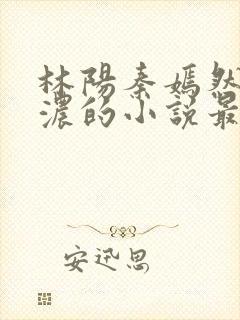 林陽秦嫣然
濃的小說最
安迅思